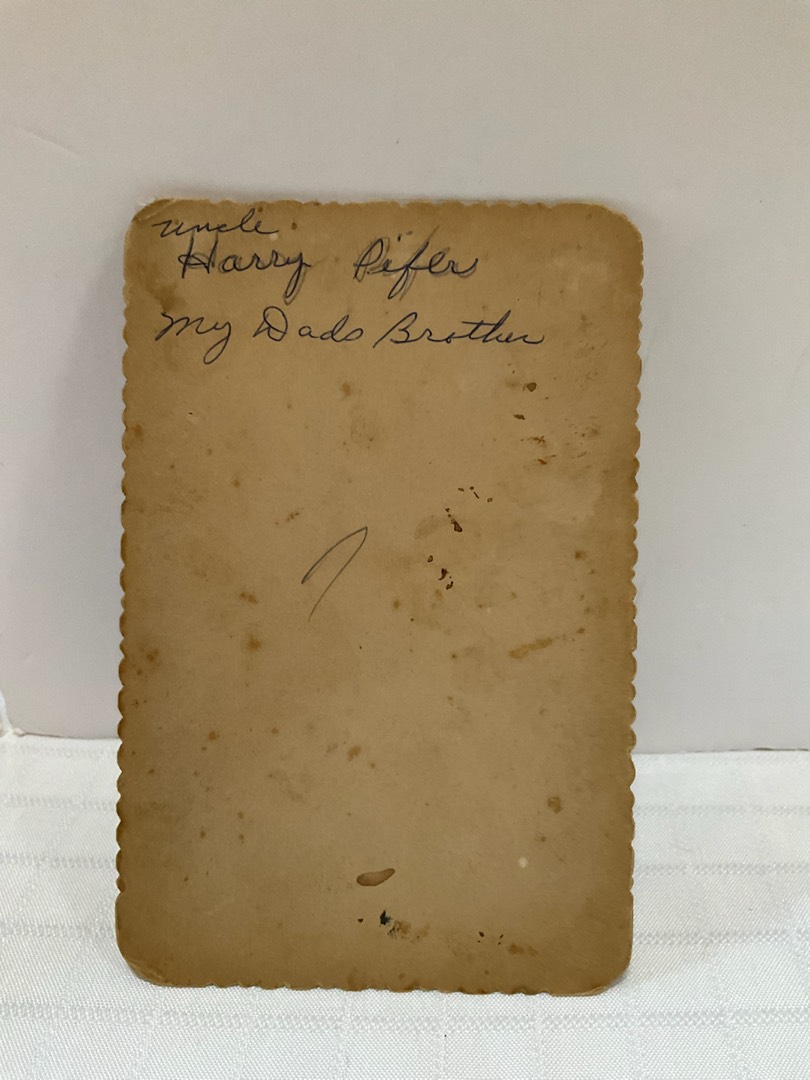 uncle
Harry Pifer
My Dads Brother